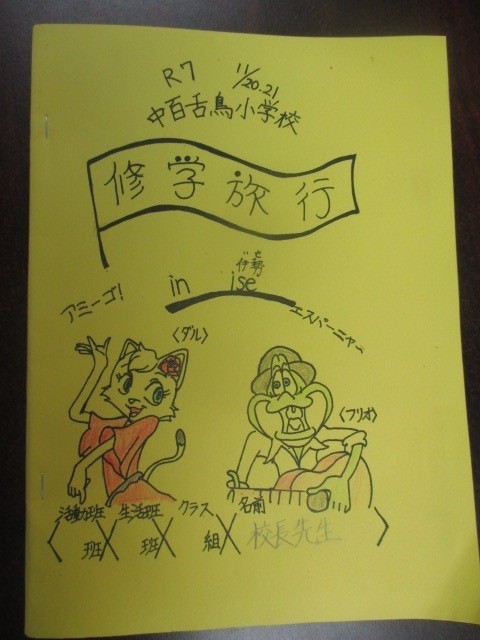 R7 11/20.21
中百舌鳥小学校
修学旅行
in ise
伊勢
アミーゴ!
エスパーニャ〜
〈ダル〉
〈フリオ〉
活動班 生活班 クラス 名前
班 班 組 校長先生